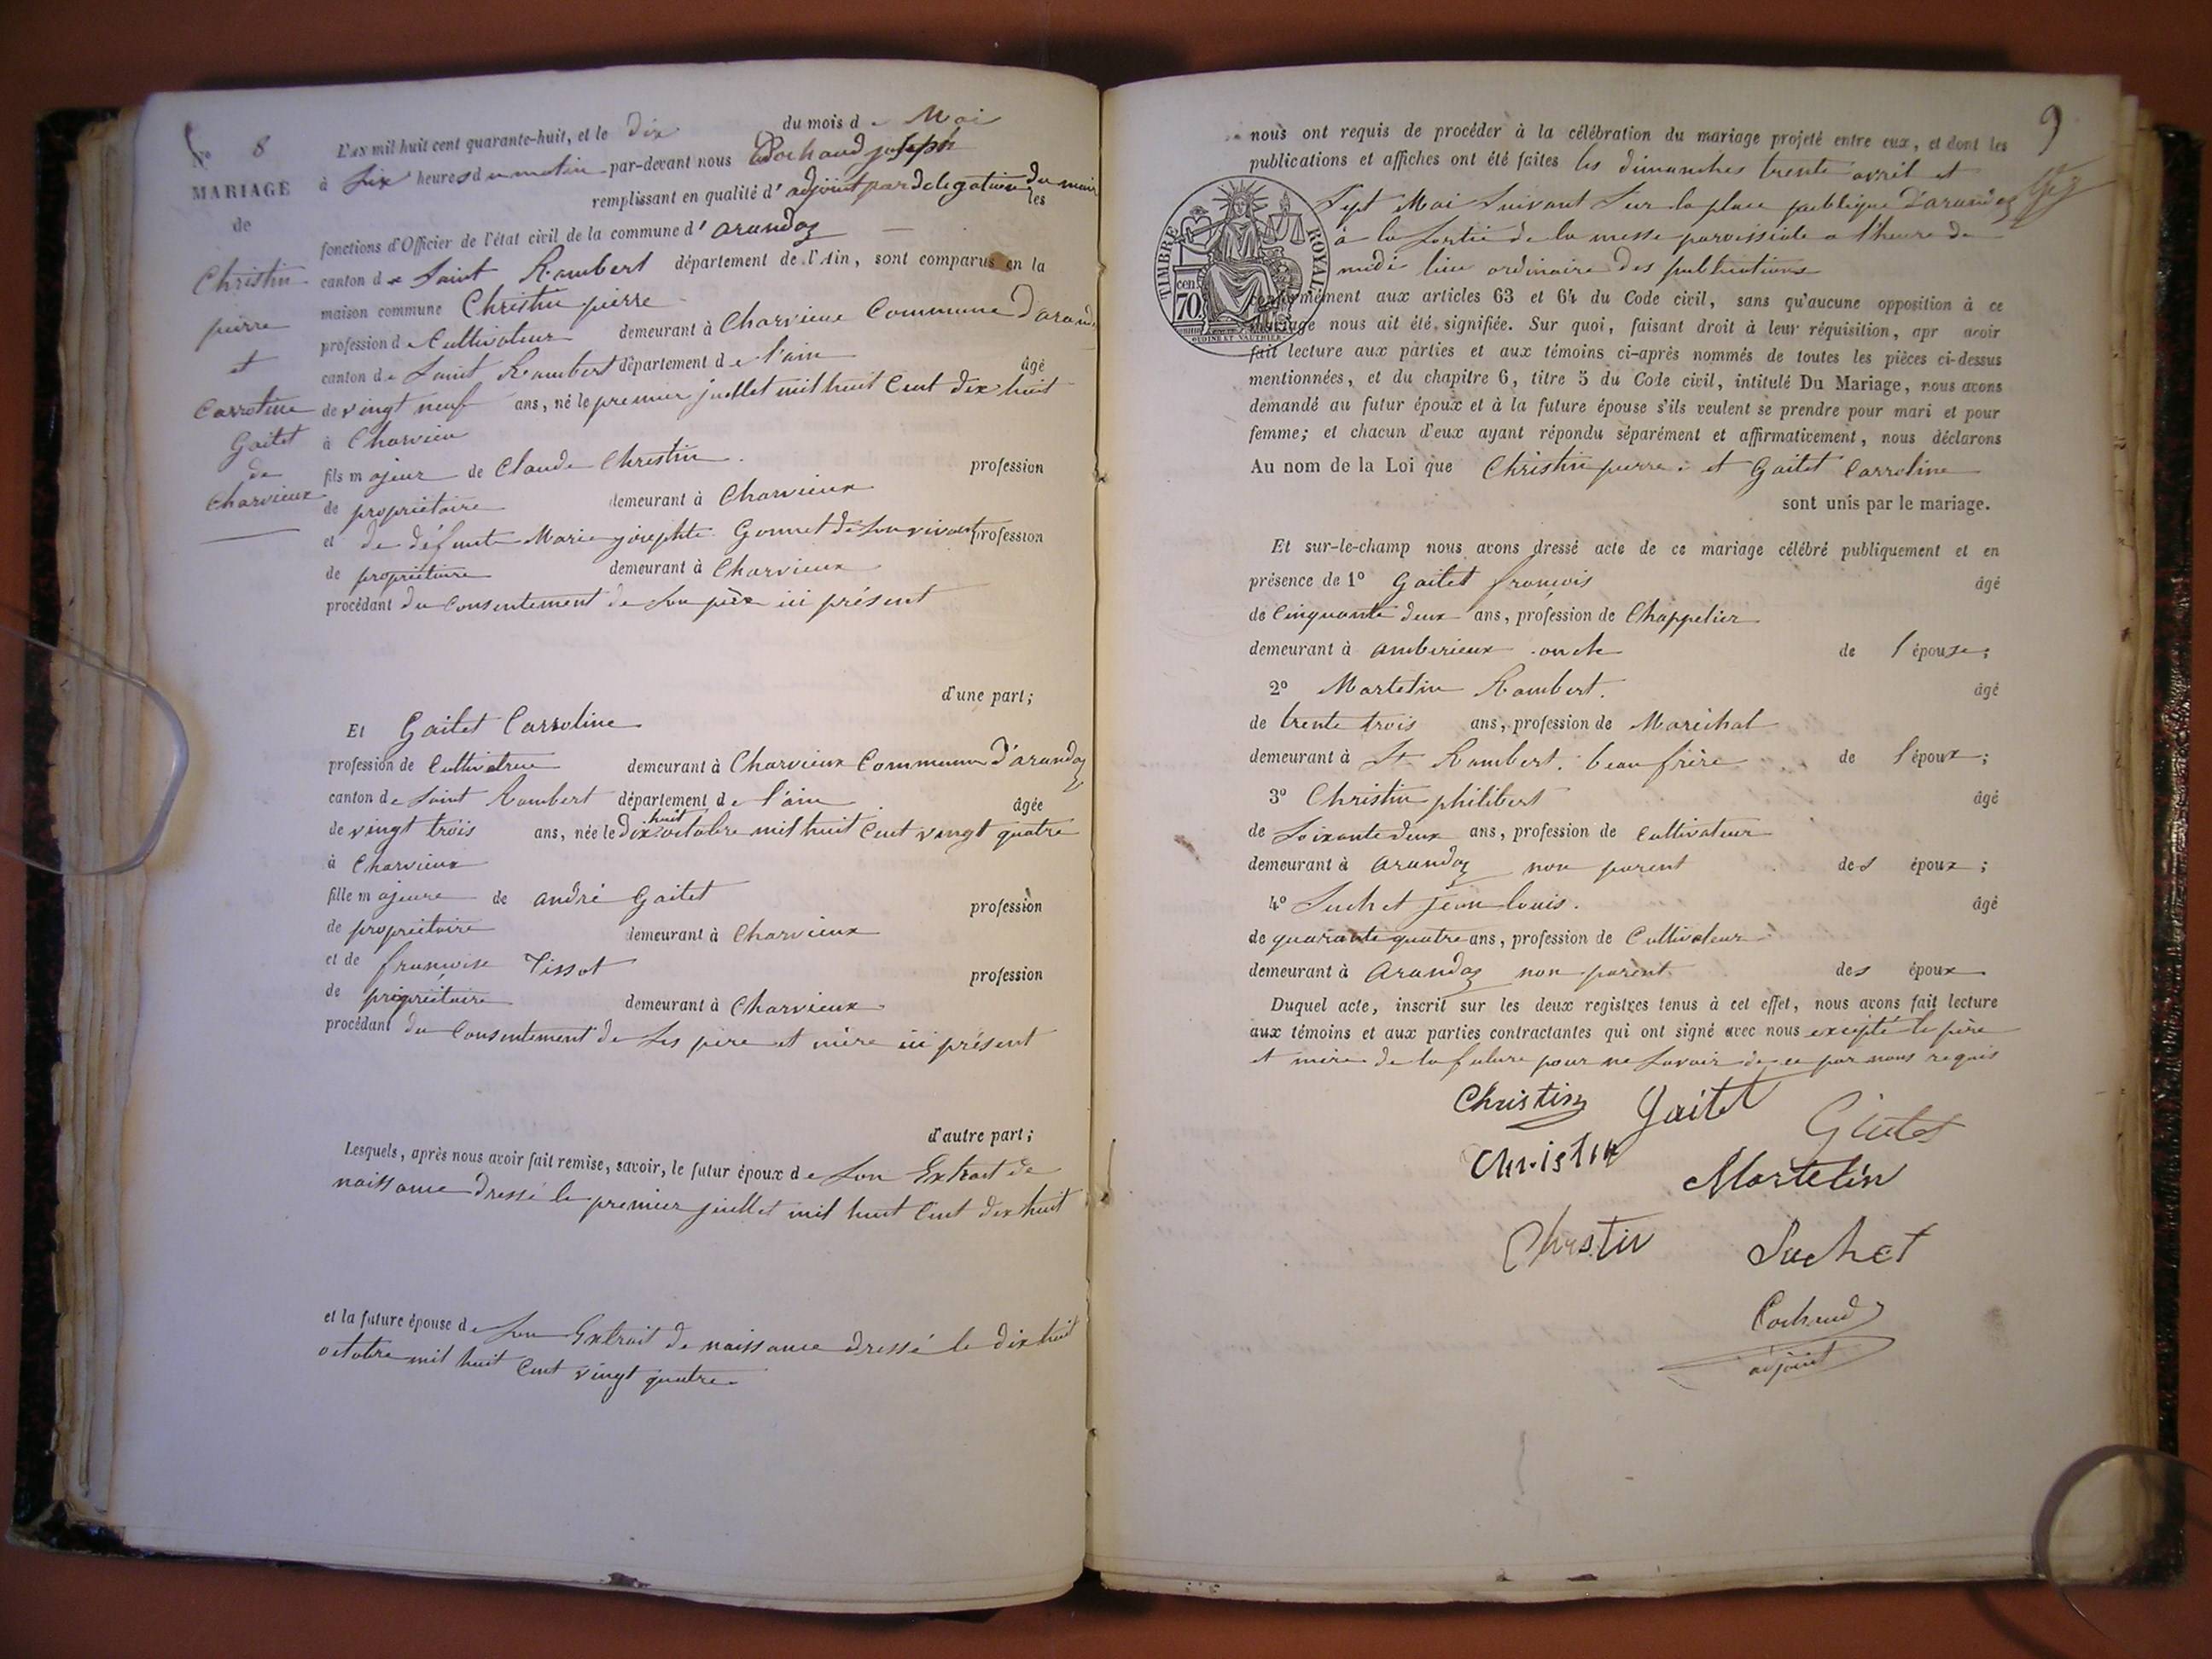 N° 8
MARIAGE
de
Christin
pierre
et
Carroline
Gaitet
de
Charvieux
L'AN mil huit cent quarante-huit, et le dix du mois de Mai
à six heures du matin par-devant nous Cochaud joseph
remplissant en qualité d'adjoint par délégation du maire les
fonctions d'Officier de l'état civil de la commune d'arandaz
canton de Saint Rambert département de l'Ain, sont comparus en la
maison commune Christin pierre
profession de Cultivateur demeurant à Charvieux Commune d'arandaz
canton de Saint Rambert département de l'ain âgé
de vingt neuf ans, né le premier juillet mil huit Cent dix huit
à Charvieu
fils majeur de Claude Christin profession
de propriétaire demeurant à Charvieux
et de défunte Marie josephte Gonnet de son vivant profession
de propriétaire demeurant à Charvieux
procédant du Consentement de son père ici présent
d'une part;
Et Gaitet Carroline
profession de Cultivatrice demeurant à Charvieux Commune d'arandaz
canton de Saint Rambert département de l'ain âgée
de vingt trois ans, née le dix huit octobre mil huit Cent vingt quatre
à Charvieux
fille majeure de andré Gaitet profession
de propriétaire demeurant à Charvieux
et de françoise Tissot profession
de propriétaire demeurant à Charvieux
procédant du Consentement de ses père et mère ici présent
d'autre part;
Lesquels, après nous avoir fait remise, savoir, le futur époux de son Extrait de
naissance dressé le premier juillet mil huit Cent dix huit
et la future épouse de son Extrait de naissance dressé le dix huit
octobre mil huit Cent vingt quatre
9
nous ont requis de procéder à la célébration du mariage projeté entre eux, et dont les
publications et affiches ont été faites les dimanches trente avril et
Sept Mai Suivant Sur la place publique d'arandaz
à la Sortie de la messe paroissiale a l'heure de
midi lieu ordinaire des publications
TIMBRE ROYAL
70 cen.
conformément aux articles 63 et 64 du Code civil, sans qu'aucune opposition à ce
mariage nous ait été signifiée. Sur quoi, faisant droit à leur réquisition, apr avoir
fait lecture aux parties et aux témoins ci-après nommés de toutes les pièces ci-dessus
mentionnées, et du chapitre 6, titre 5 du Code civil, intitulé Du Mariage, nous avons
demandé au futur époux et à la future épouse s'ils veulent se prendre pour mari et pour
femme; et chacun d'eux ayant répondu séparément et affirmativement, nous déclarons
Au nom de la Loi que Christin pierre et Gaitet Carroline
sont unis par le mariage.
Et sur-le-champ nous avons dressé acte de ce mariage célébré publiquement et en
présence de 1° Gaitet françois âgé
de Cinquante deux ans, profession de Chappelier
demeurant à amberieux oncle de l'épouse;
2° Martelin Rambert. âgé
de trente trois ans, profession de Maréchal
demeurant à St Rambert. beau frère de l'époux;
3° Christin philibert âgé
de Soixante deux ans, profession de Cultivateur
demeurant à arandaz non parent des époux;
4° Suchet jean louis. âgé
de quarante quatre ans, profession de Cultivateur
demeurant à arandaz non parent des époux
Duquel acte, inscrit sur les deux registres tenus à cet effet, nous avons fait lecture
aux témoins et aux parties contractantes qui ont signé avec nous excepté le père
et mère de la future pour ne Savoir de ce par nous requis
Christin Gaitet
Christin Martelin
Suchet
Cochaud
adjoint